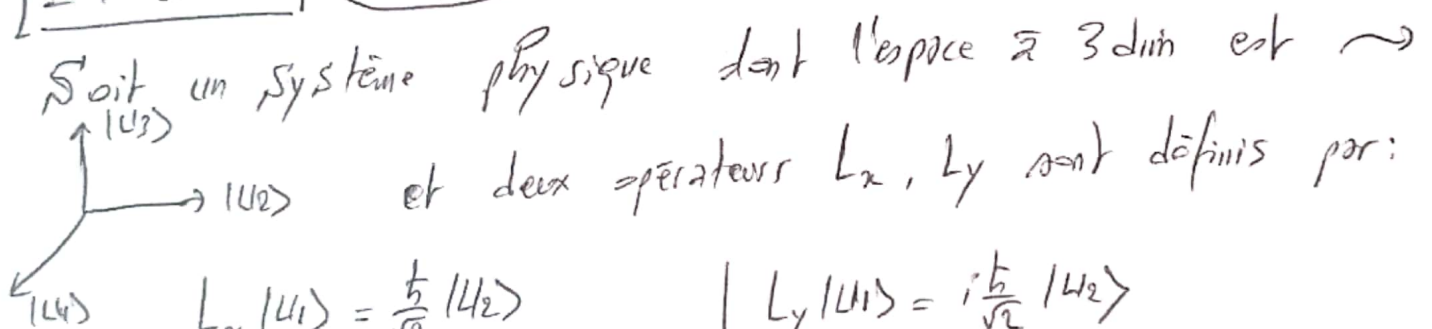 Soit un système physique dont l'espace à 3 dim est
|U3>
et deux opérateurs Lx, Ly sont définis par:
|U2>
|U1>
Lx |U1> = ħ/√2 |U2> | Ly |U1> = i ħ/√2 |U2>